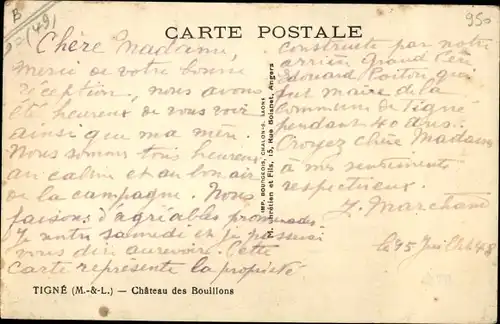 B
(49)
950
CARTE POSTALE
Chère Madame,
Merci de votre bonne
réception, nous avons
été heureux de vous voir
ainsi que ma mère.
Nous sommes tous heureux
au calme et au bon air
de la campagne. Nous
faisons d'agréables promenades.
Je rentre samedi et je passerai
vous dire au revoir. Cette
carte représente la propriété
construite par notre
arrière Grand Père
Edouard Poitou qui
fut maire de la
Commune de Tigné
pendant 40 ans.
Croyez chère Madame
à mes sentiments
respectueux.
J. Marchand
le 25 Juillet 48
IMP. BOURGEOIS, CHALON-S.-SAONE
M. Chrétien et Fils, 15, Rue Boisnet, Angers
TIGNÉ (M.-&-L.) — Château des Bouillons